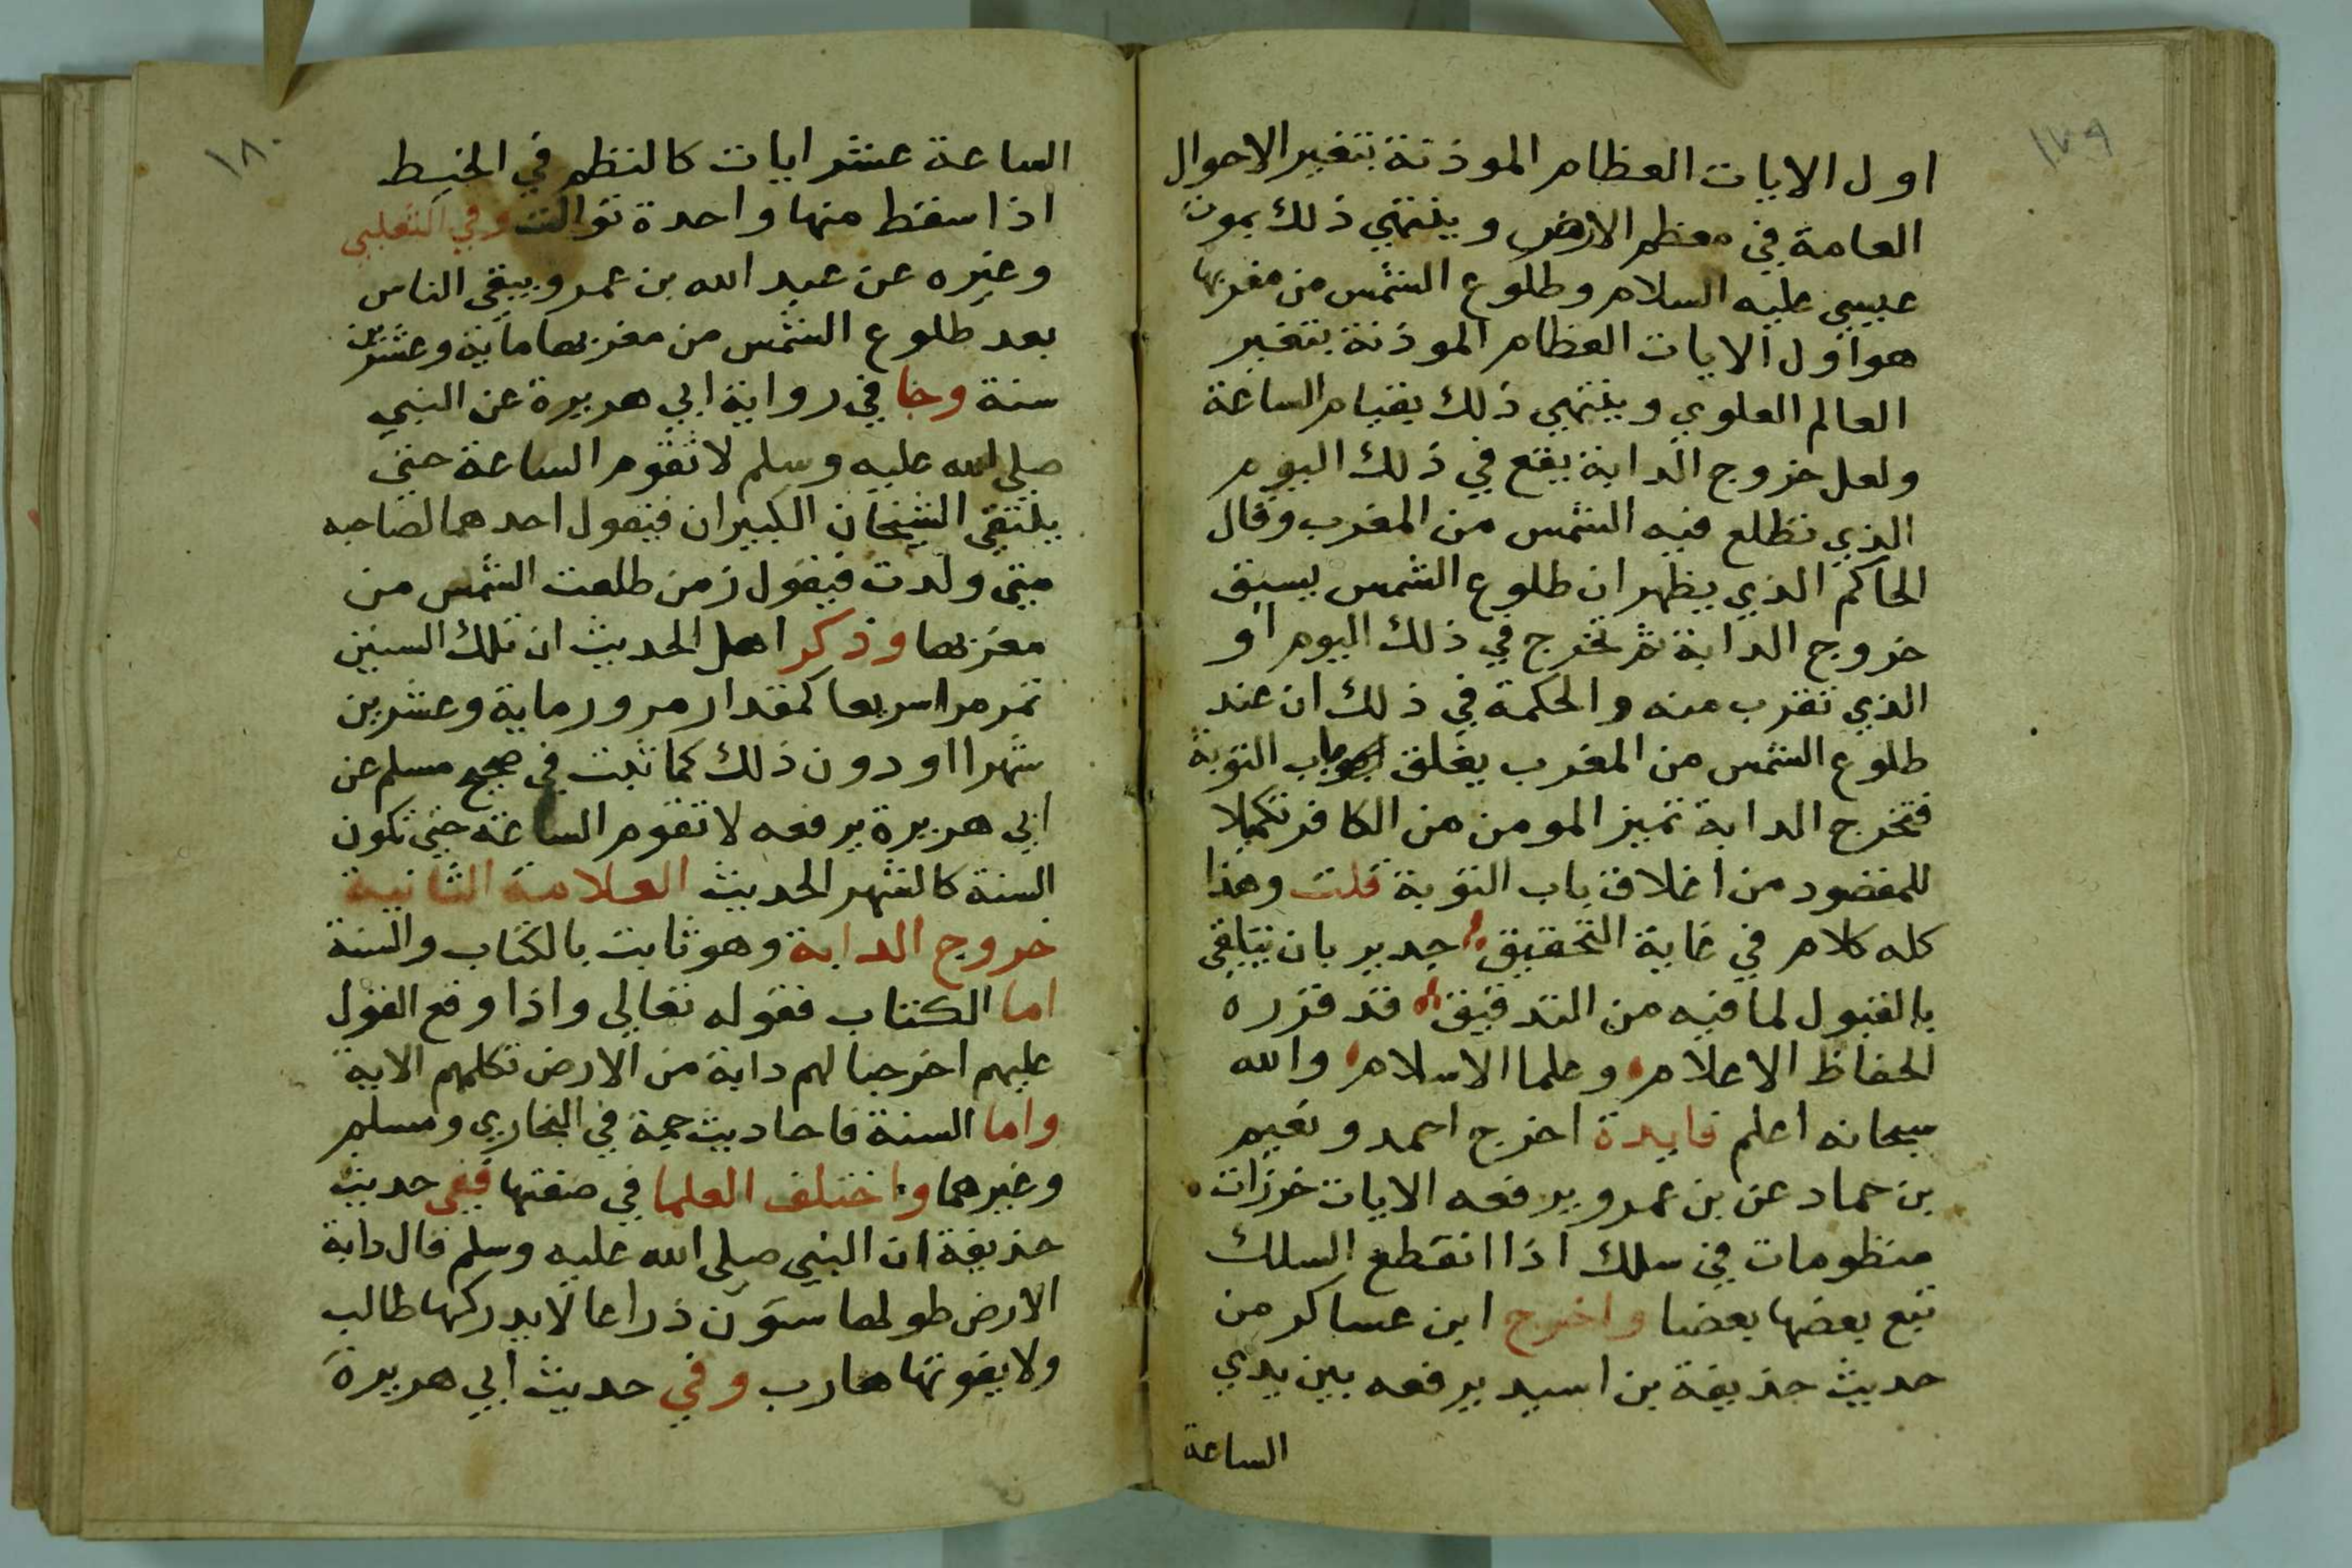 ١٧٩
اول الايات العظام الموذنة بتغير الاحوال
العامة في معظم الارض وينتهي ذلك بموت
عيسي عليه السلام وطلوع الشمس من مغربها
هو اول الايات العظام الموذنة بتغير
العالم العلوي وينتهي ذلك بقيام الساعة
ولعل خروج الدابة يقع في ذلك اليوم
الذي تطلع فيه الشمس من المغرب وقال
الحاكم الذي يظهر ان طلوع الشمس يسبق
خروج الدابة ثم تخرج في ذلك اليوم او
الذي تقرب منه والحكمة في ذلك ان عند
طلوع الشمس من المغرب يغلق باب التوبة
فتخرج الدابة تميز المومن من الكافر تكميلا
للمقصود من اغلاق باب التوبة قلت وهذا
كله كلام في غاية التحقيق جدير بان يتلقي
بالقبول لما فيه من التدقيق قد قرره
الحفاظ الاعلام وعلما الاسلام والله
سبحانه اعلم فايدة اخرج احمد ونعيم
بن حماد عن بن عمرو يرفعه الايات خرزات
منظومات في سلك اذا انقطع السلك
تبع بعضها بعضا واخرج ابن عساكر من
حديث حذيفة بن اسيد يرفعه بين يدي
الساعة
١٨٠
الساعة عشر ايات كالنظم في الخيط
اذا سقط منها واحدة توالت وفي الثعلبي
وغيره عن عبد الله بن عمرو ويبقي الناس
بعد طلوع الشمس من مغربها ماية وعشرين
سنة وجا في رواية ابي هريرة عن النبي
صلي الله عليه وسلم لا تقوم الساعة حتي
يلتقي الشيخان الكبيران فيقول احدهما لصاحبه
متي ولدت فيقول زمن طلعت الشمس من
مغربها وذكر اهل الحديث ان تلك السنين
تمر مرا سريعا كمقدار مرور ماية وعشرين
شهرا او دون ذلك كما ثبت في صحيح مسلم عن
ابي هريرة يرفعه لا تقوم الساعة حتي تكون
السنة كالشهر الحديث العلامة الثانية
خروج الدابة وهو ثابت بالكتاب والسنة
اما الكتاب فقوله تعالي واذا وقع القول
عليهم اخرجنا لهم دابة من الارض تكلمهم الاية
واما السنة فاحاديث جمة في البخاري ومسلم
وغيرهما واختلف العلما في صفتها ففي حديث
حذيفة ان النبي صلي الله عليه وسلم قال دابة
الارض طولها ستون ذراعا لا يدركها طالب
ولا يفوتها هارب وفي حديث ابي هريرة